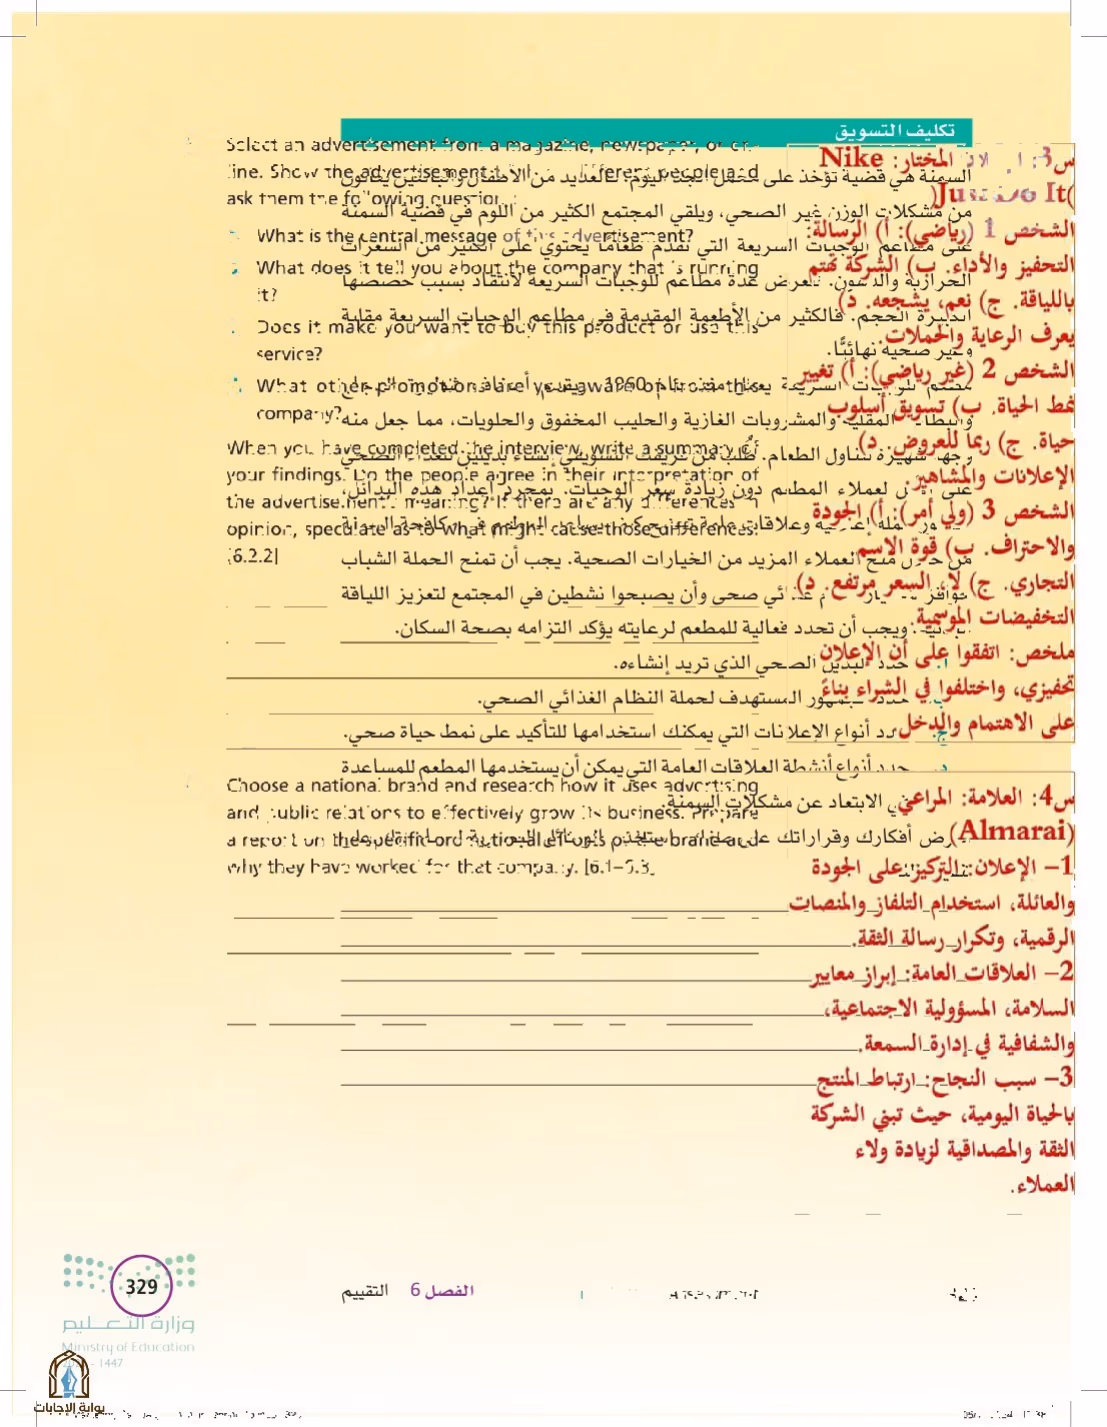 تكليف التسويق
Select an advertisement from a magazine, newspaper, or on-
line. Show the advertisement different people and
ask them the following question
What is the central message of this advertisement?
What does it tell you about the company that is running
it?
Does it make you want to buy this product or use this
service?
What other promotions are you aware of from this
company?
When you have completed the interview, write a summary of
your findings. Do the people agree in their interpretation of
the advertisement's meaning? If there are any differences in
opinion, speculate as to what might cause those differences.
[6.2.2]
Choose a national brand and research how it uses advertising
and public relations to effectively grow its business. Prepare
a report on the specific
why they have worked for that company. [6.1–6.3]
السمنة هي قضية تؤخذ على محمل الجد اليوم. فالعديد من الأطفال والبالغين يعانون
من مشكلات الوزن غير الصحي، ويلقي المجتمع الكثير من اللوم في قضية السمنة
على مطاعم الوجبات السريعة التي تقدم طعامًا يحتوي على الكثير من السعرات
الحرارية والدهون. تعرض عدة مطاعم للوجبات السريعة لانتقاد بسبب حصصها
الكبيرة الحجم. فالكثير من الأطعمة المقدمة في مطاعم الوجبات السريعة مقلية
وغير صحية نهائيًا.
1960
والبطاطا المقلية والمشروبات الغازية والحليب المخفوق والحلويات، مما جعل منه
وجهة شهيرة لتناول الطعام. طُلب من فريقك التسويقي إنشاء بديلين للغذاء الصحي
لعملاء المطعم دون زيادة سعر الوجبات. بمجرد إعداد هذه البدائل،
وعلاقات عامة
من خلال منح العملاء المزيد من الخيارات الصحية. يجب أن تمنح الحملة الشباب
غذائي صحي وأن يصبحوا نشطين في المجتمع لتعزيز اللياقة
ويجب أن تحدد فعالية للمطعم لرعايته يؤكد التزامه بصحة السكان.
حدد البديل الصحي الذي تريد إنشاءه.
المستهدف لحملة النظام الغذائي الصحي.
ج. حدد أنواع الإعلانات التي يمكنك استخدامها للتأكيد على نمط حياة صحي.
د. حدد أنواع أنشطة العلاقات العامة التي يمكن أن يستخدمها المطعم للمساعدة
في الابتعاد عن مشكلات السمنة.
أفكارك وقراراتك
س3: المختار: Nike
(Just Do It)
الشخص 1 (رياضي): أ) الرسالة:
التحفيز والأداء. ب) الشركة تهتم
باللياقة. ج) نعم، يشجعه. د)
يعرف الرعاية والحملات
الشخص 2 (غير رياضي): أ) تغيير
نمط الحياة. ب) تسويق أسلوب
حياة. ج) ربما للعروض. د)
الإعلانات والمشاهير.
الشخص 3 (ولي أمر): أ) الجودة
والاحتراف. ب) قوة الاسم
التجاري. ج) لا، السعر مرتفع. د)
التخفيضات الموسمية.
ملخص: اتفقوا على أن الإعلان
تحفيزي، واختلفوا في الشراء بناءً
على الاهتمام والدخل.
س4: العلامة: المراعي
(Almarai)
1– الإعلان: التركيز على الجودة
والعائلة، استخدام التلفاز والمنصات
الرقمية، وتكرار رسالة الثقة.
2– العلاقات العامة: إبراز معايير
السلامة، المسؤولية الاجتماعية،
والشفافية في إدارة السمعة.
3– سبب النجاح: ارتباط المنتج
بالحياة اليومية، حيث تبني الشركة
الثقة والمصداقية لزيادة ولاء
العملاء.
الفصل 6 التقييم
329
وزارة التعليم
Ministry of Education
1447
بوابة الإجابات